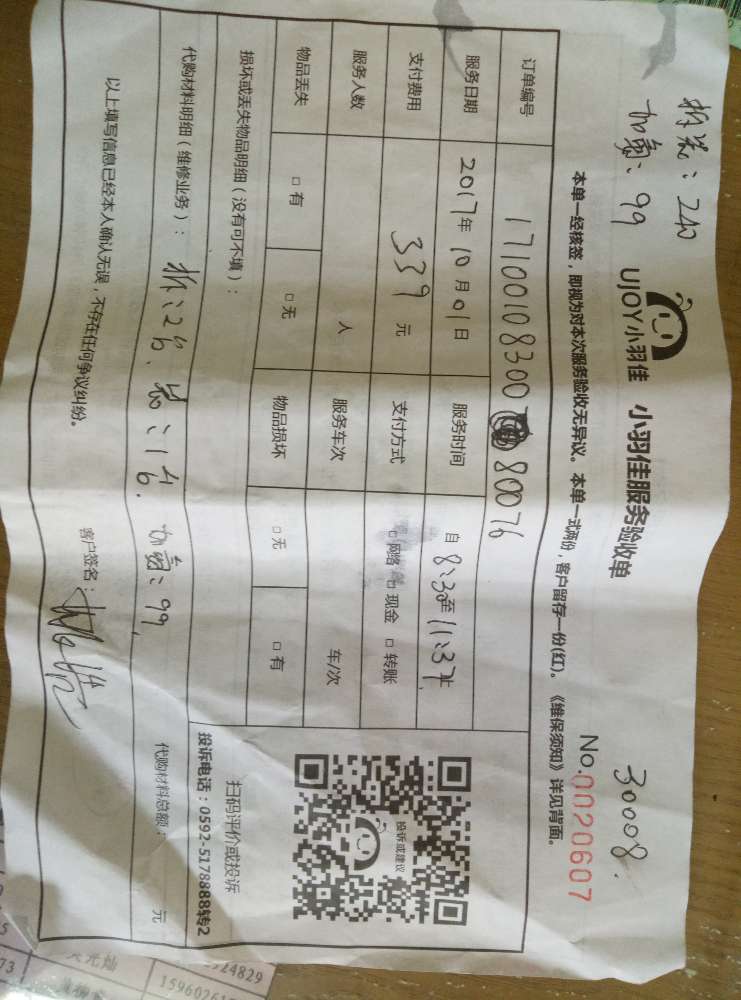 拆装：240
加氟：99
30008.
UJOY小羽佳 小羽佳服务验收单
No.0020607
本单一经核签，即视为对本次服务验收无异议。本单一式两份，客户留存一份(红)。《维保须知》详见背面。
订单编号 17100108300 80076
服务日期 2017年10月01日 服务时间 自8:30至11:37止
支付费用 339元 支付方式 □网络 □现金 □转账
服务人数 人 服务车次 车/次
物品丢失 □有 □无 物品损坏 □无 □有
投诉或建议
扫码评价或投诉
投诉电话：0592-5178888转2
损坏或丢失物品明细（没有可不填）：
代购材料明细（维修业务）： 拆:2台、装:1台. 加氟:99,
代购材料总额： 元
以上填写信息已经本人确认无误，不存在任何争议纠纷。
客户签名：
24829
1596026
73